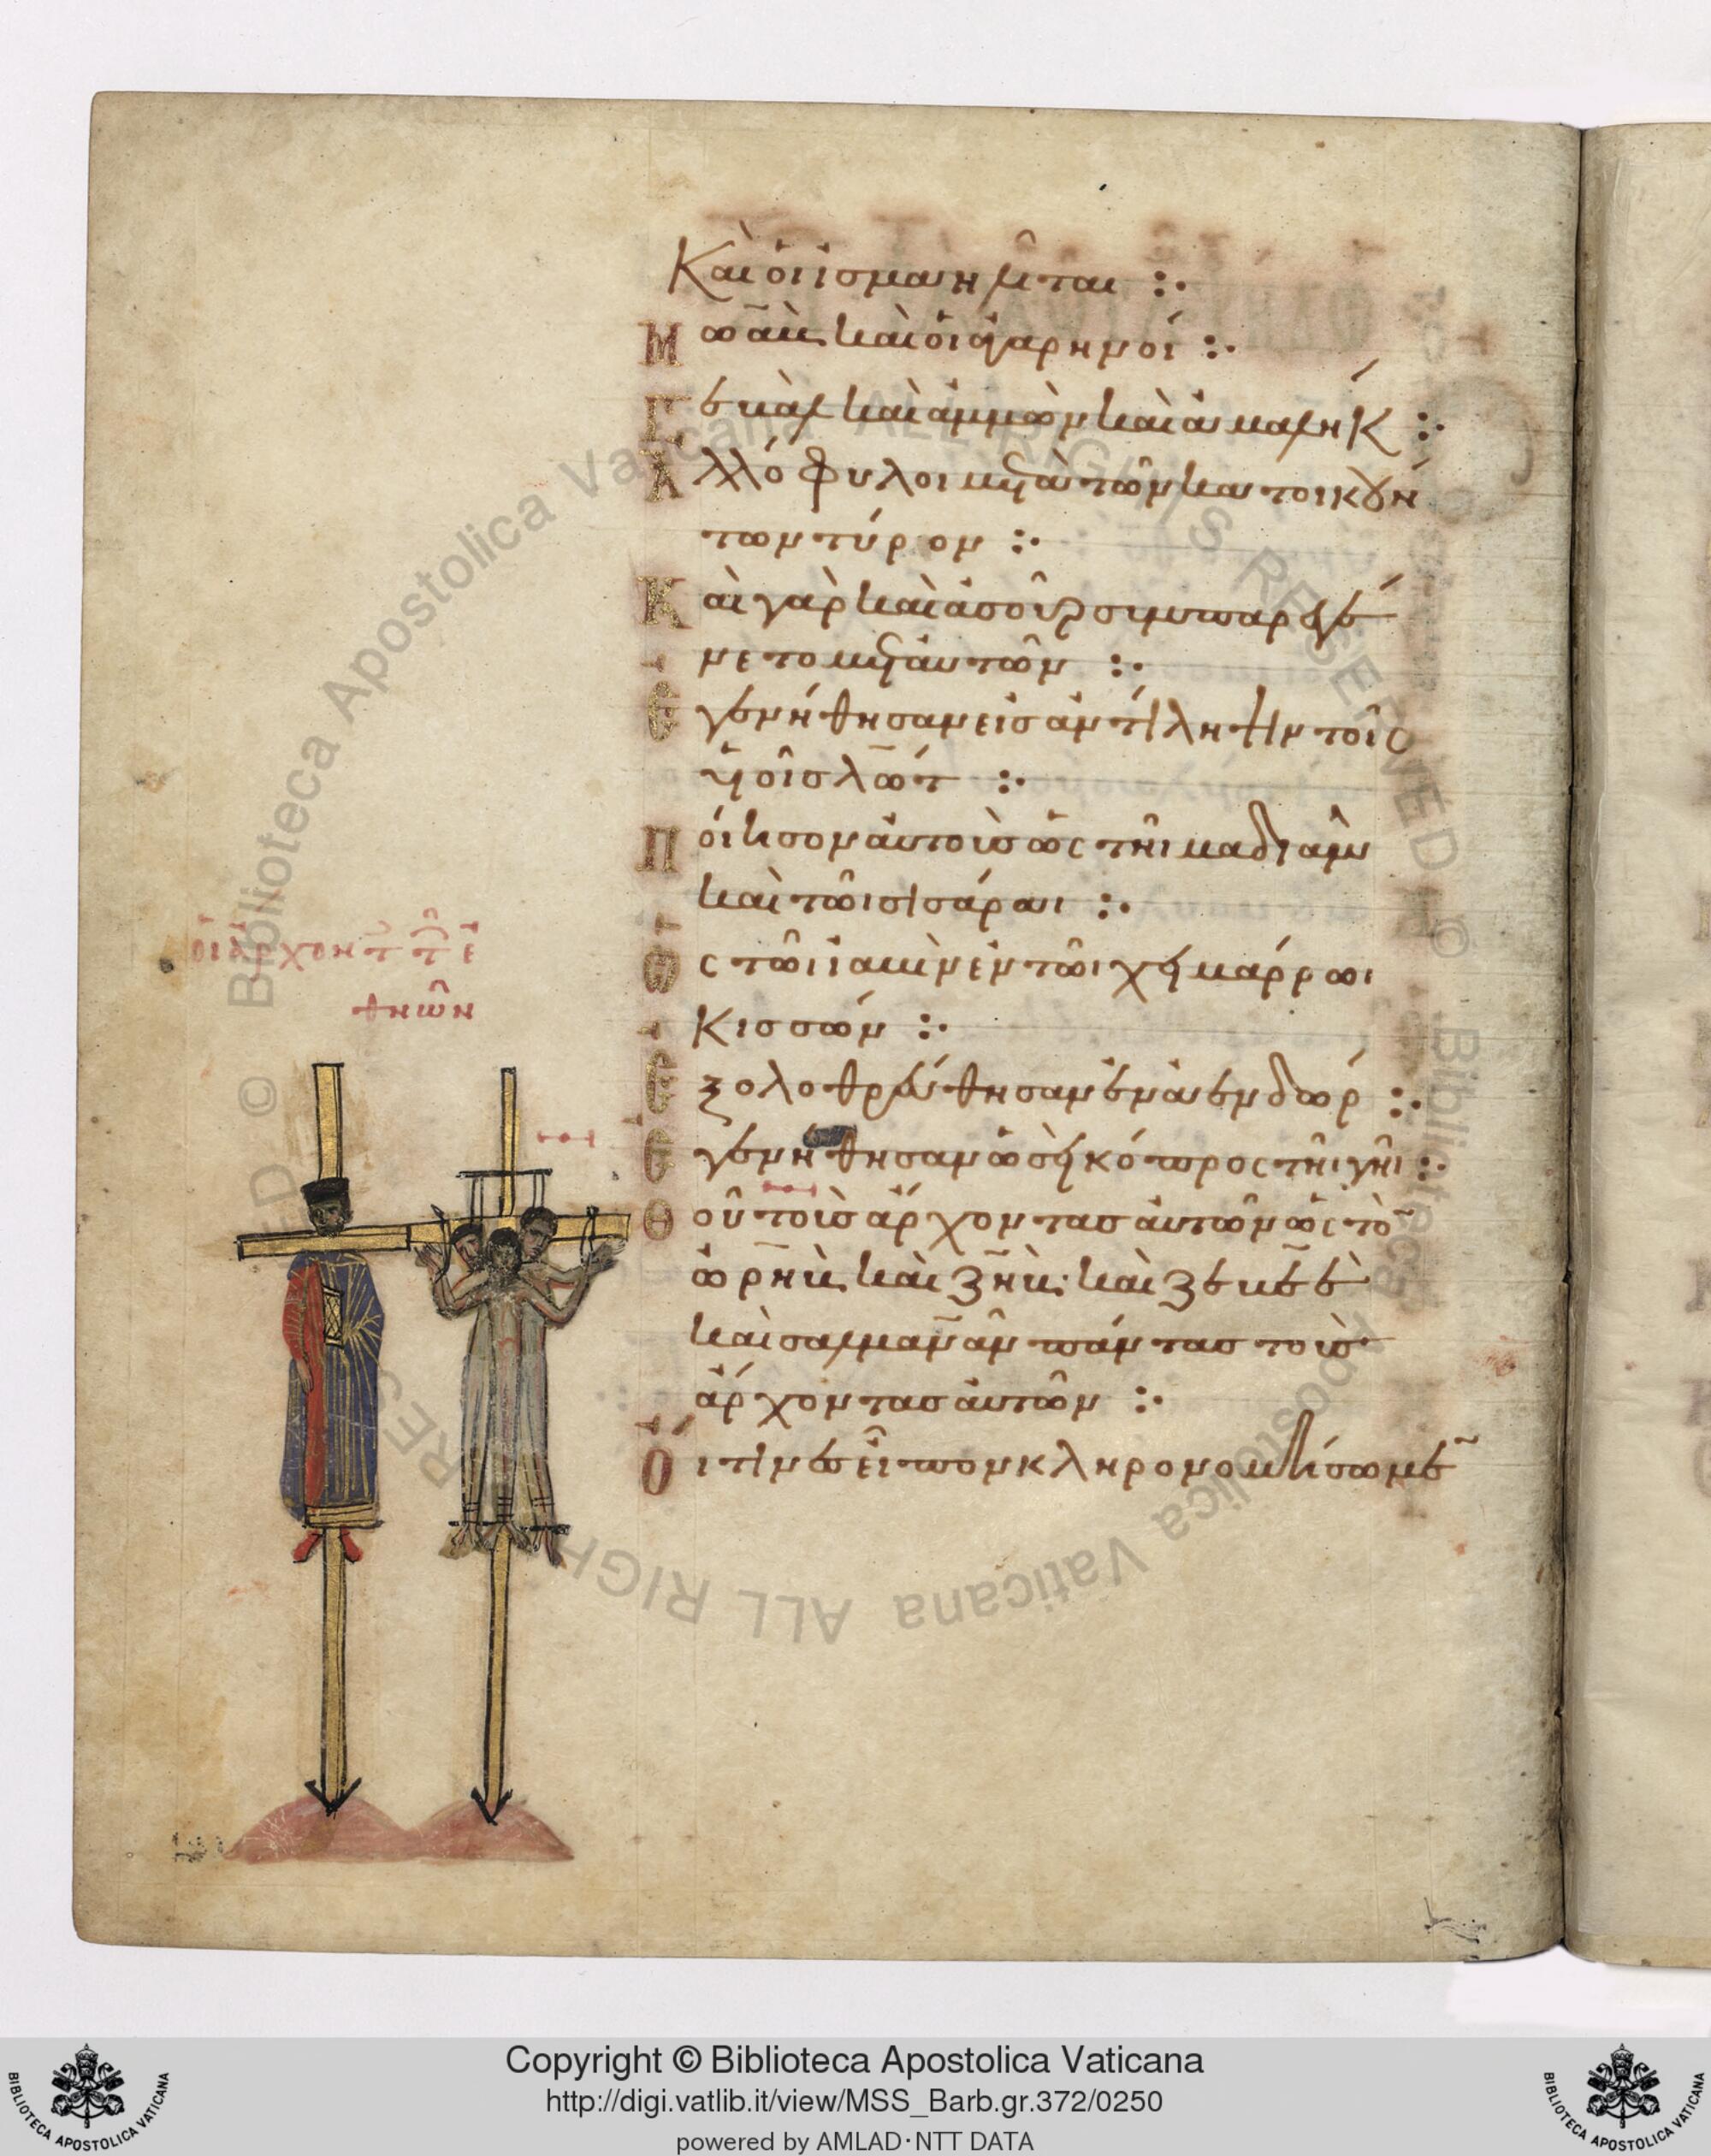 Καὶ ὁι ἰσμαηλῖται :·
Μωὰβ καὶ ὁι ἀγαρηνοί :·
Γεβὰλ καὶ ἀμμὼν καὶ ἀμαλήκ :·
Ἀλλόφυλοι μετὰ τῶν κατοικούν
των τύρον :·
Καὶ γὰρ καὶ ἀσοὺρ συμπαρεγέ
νετο μετ' ἀυτῶν :·
Ἐγενήθησαν εἰς ἀντίληψιν τοῖς
υἱοῖς λώτ :·
Ποίησον ἀυτοῖς ὡς τῆι μαδιὰμ
καὶ τῶι σισάραι :·
Ὡς τῶι ἰαβὶν ἐν τῶι χειμάρρωι
κισσών :·
Ἐξολοθρεύθησαν ἐν ἀενδώρ :·
Ἐγενήθησαν ὡσεὶ κόπρος τῆι γῆι :·
Θοῦ τοὺς ἄρχοντας ἀυτῶν ὡς τὸν
ὠρὴβ καὶ ζὴβ· καὶ ζεβεὲ
καὶ σαλμανᾶν πάντας τοὺς
ἄρχοντας ἀυτῶν :·
Ὅιτινες εἶπον κληρονομήσωμεν
οἱ ἄρχοντ τ ἐ
θνῶν
© Biblioteca Apostolica Vaticana ALL RIGHTS RESERVED
© Biblioteca Apostolica Vaticana ALL RIGHTS RESERVED
Copyright © Biblioteca Apostolica Vaticana
http://digi.vatlib.it/view/MSS_Barb.gr.372/0250
powered by AMLAD·NTT DATA
BIBLIOTECA APOSTOLICA VATICANA
BIBLIOTECA APOSTOLICA VATICANA